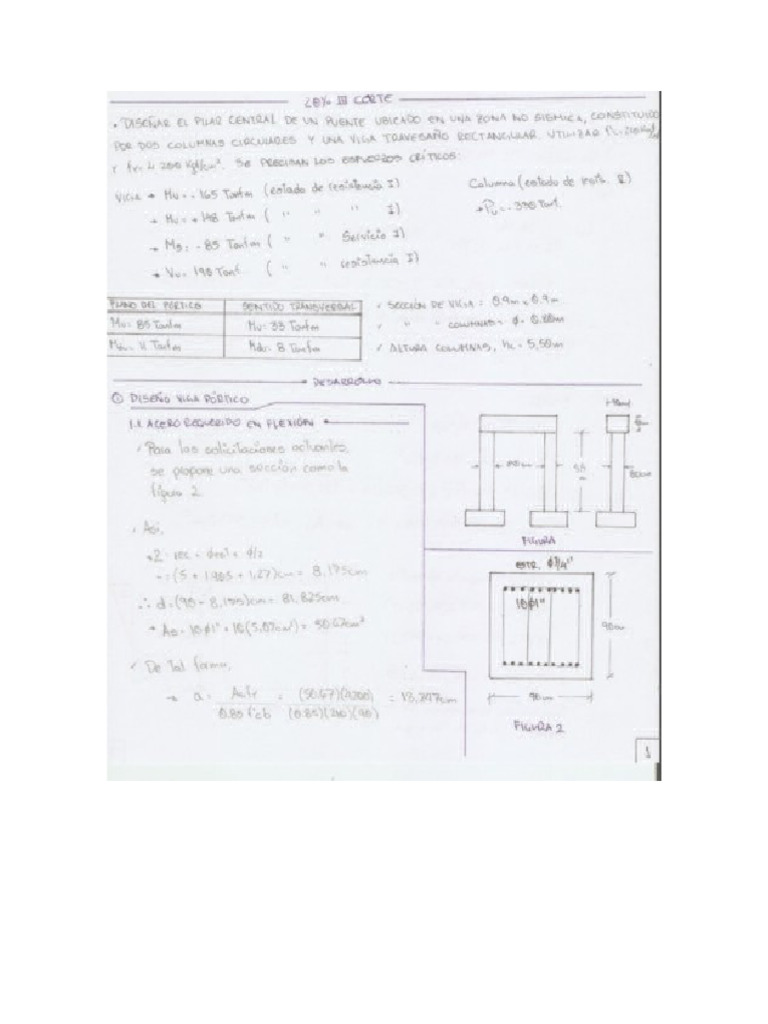 20% III CORTE
• DISEÑAR EL PILAR CENTRAL DE UN PUENTE UBICADO EN UNA ZONA NO SISMICA, CONSTITUIDO
POR DOS COLUMNAS CIRCULARES Y UNA VIGA TRAVESAÑO RECTANGULAR. UTILIZAR
Y SE PRECISAN LOS ESFUERZOS CRÍTICOS:
VIGA → Mu = - 165 Tonfm (estado de resistencia I)
→ Mu = + 148 Tonfm ( " " " I)
→ Ms = - 85 Tonfm ( " " Servicio I)
→ Vu = 190 Tonf. ( " " resistencia I)
Columna (estado de
→ Pu = - 390 Tonf.
PLANO DEL PÓRTICO SENTIDO TRANSVERSAL
Mu = 85 Tonfm Mu = 33 Tonfm
Mdu = 11 Tonfm Mdu = 8 Tonfm
✓ SECCIÓN DE VIGA = 0.9m x 0.9m
✓ " " COLUMNAS = ϕ = 0.80m
✓ ALTURA COLUMNAS, Hc = 5,50m
DESARROLLO
① DISEÑO VIGA PÓRTICO
1.1 ACERO REQUERIDO EN FLEXIÓN
✓ Para las solicitaciones actuantes,
se propone una sección como la
figura 2.
80cm
FIGURA
• Asi,
• Z = rec + ϕest + ϕ/2
= (5 + 1.905 + 1.27)cm = 8.175cm
∴ d = (90 - 8.175)cm = 81.825cm
→ As = 10 ϕ1" = 10(5.07cm²) = 50.67cm²
ESTR. ϕ3/4"
10ϕ1"
90cm
90cm
FIGURA 2
✓ De tal forma,
→ a = As fy / 0.85 f'c b = (50.67)(4200) / (0.85)(210)(90) = 13.247cm
1